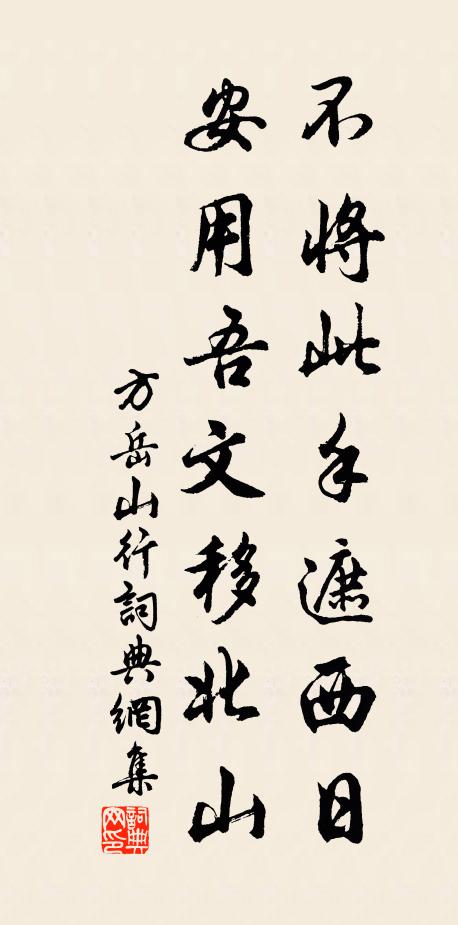 不將此手遮西日
安用吾文移北山
方岳山行詞典網集
詞典网印